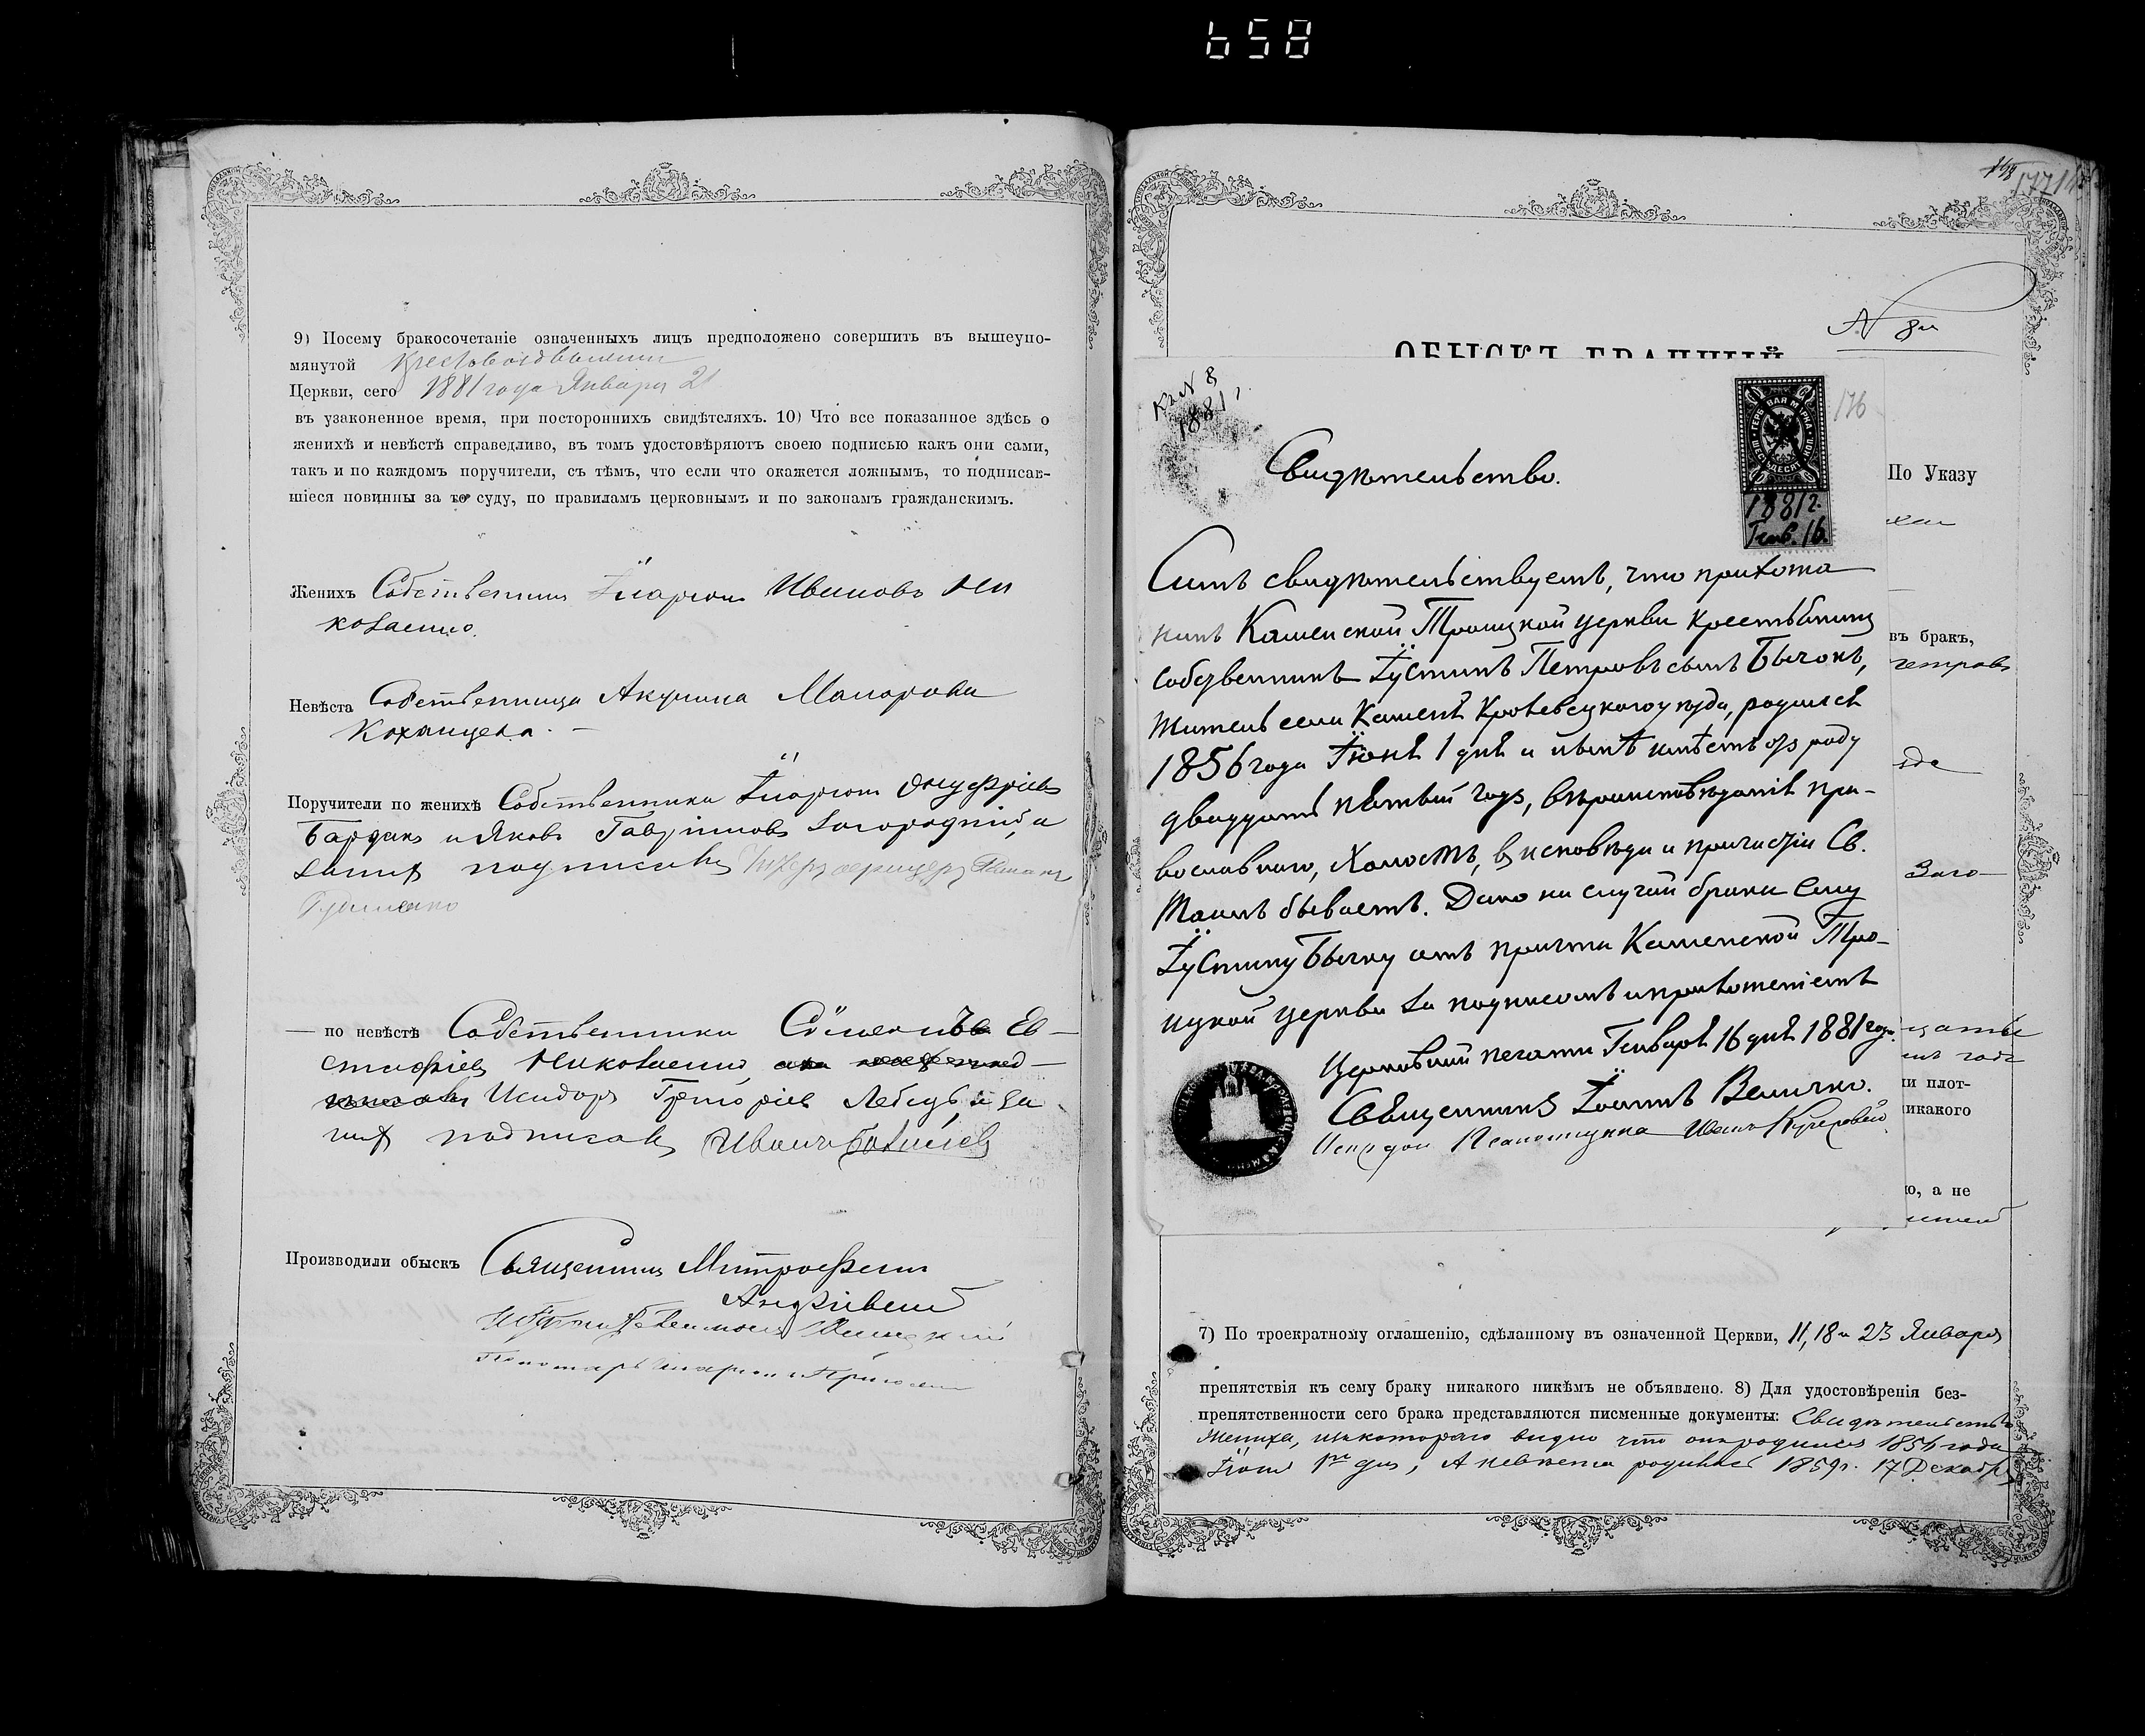 658
9) Посему бракосочетаніе означенныхъ лицъ предположено совершить въ вышеупо-
мянутой Крестовоздвиженской
Церкви, сего 1881 года Января 21
въ узаконенное время, при постороннихъ свидѣтеляхъ. 10) Что все показанное здѣсь о
женихѣ и невѣстѣ справедливо, въ томъ удостовѣряютъ своею подписью какъ они сами,
такъ и по каждомъ поручители, съ тѣмъ, что если что окажется ложнымъ, то подписав-
шіеся повинны за то суду, по правиламъ церковнымъ и по законамъ гражданскимъ.
Женихъ Собственникъ Іларіонъ Ивановъ Ни
колаенко.
Невѣста Собственница Акулина
Поручители по женихѣ Собственники Іларіонъ Онуфріевъ
Бардакъ и Яковъ Гавриловъ Загородній, а
за нихъ подписавъ
по невѣстѣ Собственники Ев-
стафіевъ Николаенко,
Исидоръ Григоріевъ Лебедь, и за
нихъ подписавъ Иванъ
Производили обыскъ Священникъ Митрофанъ
Андріевскій
Пономарь Иларіонъ
177
N 8й
ОБЫСКЪ БРАЧНЫЙ
Къ N 8
1881 г.
176
ГЕРБОВАЯ МАРКА ШЕСТЬДЕСЯТ
1881 г.
Генв. 16.
Свидѣтельство.
Симъ свидѣтельствуемъ, что прихожа
нинъ Каменской Троицкой церкви крестьянинъ
собственникъ Іустинъ Петровъ сынъ Бычокъ,
житель села Каменя Кролевецкаго уѣзда, родился
1856 года Іюня 1 дня и нынѣ имѣетъ отъ роду
двадцать пятый годъ, вѣроисповѣданія пра-
вославнаго, холостъ, въ исповѣди и причастіи Св.
Таинъ бываетъ. Дано на случай брака Ему
Іустину Бычку отъ причта Каменской Тро-
ицкой церкви за подписомъ и приложеніемъ
Церковной печати Генваря 16 дня 1881 года.
Священникъ Іоаннъ Величко.
Псаломщика Иванъ
По Указу
въ бракъ,
Заго-
и плот-
икакого
о, а не
7) По троекратному оглашенію, сдѣланному въ означенной Церкви, 11, 18 и 23 Января
препятствія къ сему браку никакого никѣмъ не объявлено. 8) Для удостовѣренія без-
препятственности сего брака представляются писменные документы: Свидѣтельство
Жениха, изъ котораго видно что онъ родился 1856 года
Іюня 1го дня, А невѣста родилась 1859 г. 17 Декабр